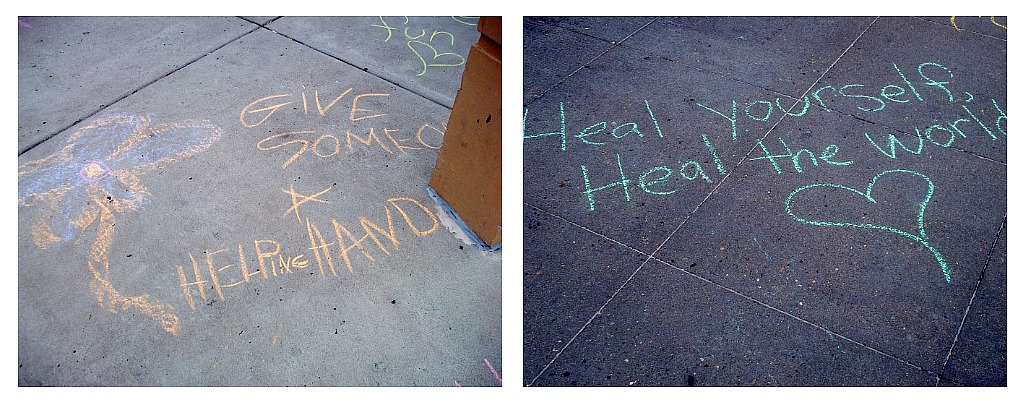 GIVE
SOMEO
A
HELPING HAND
fun
Heal yourself,
Heal the world